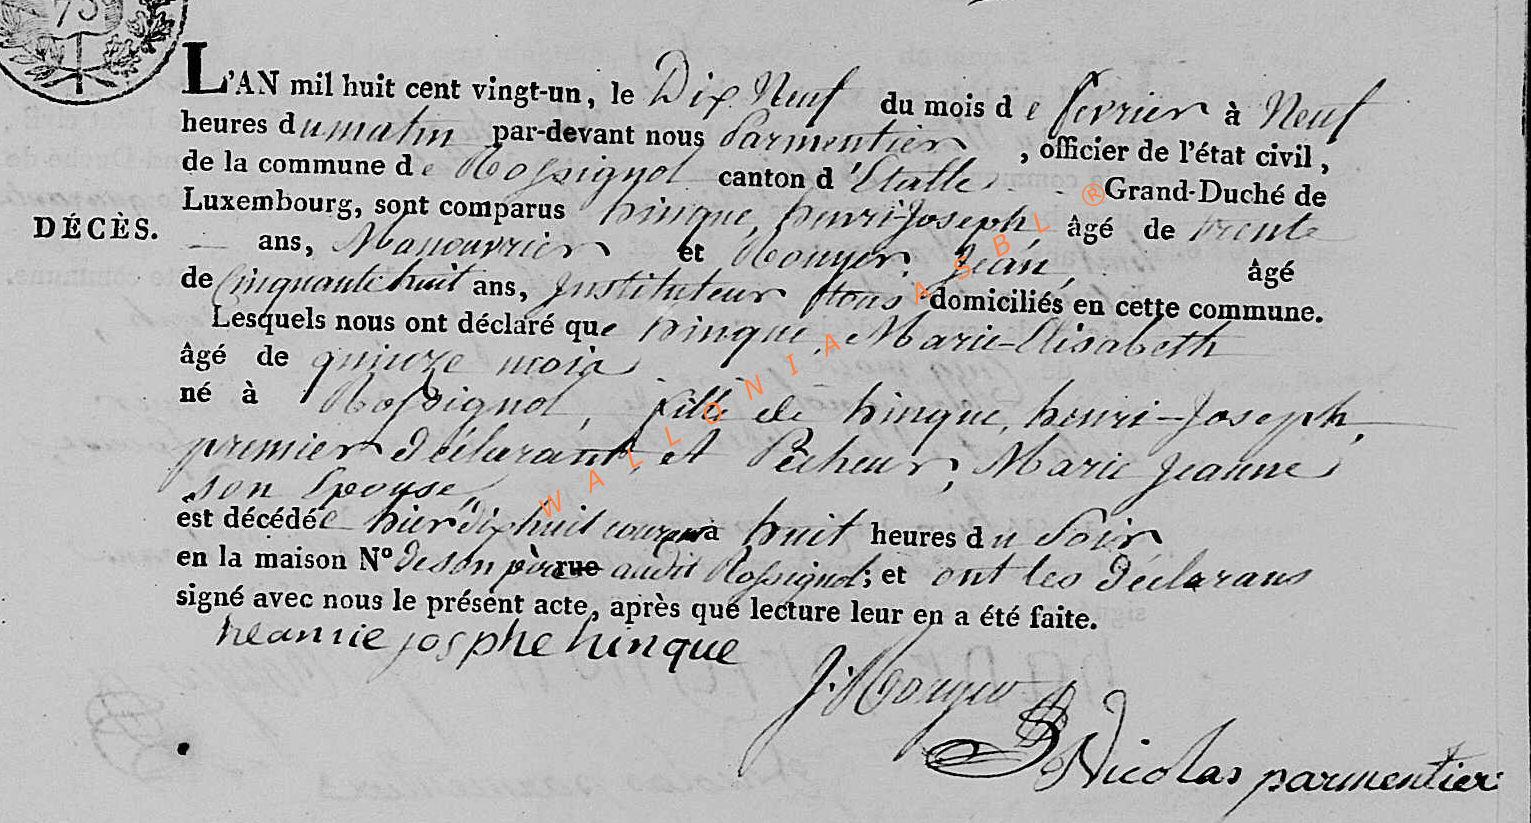 75
L'AN mil huit cent vingt-un, le Dix Neuf du mois de fevrier à Neuf
heures du matin par-devant nous Parmentier, officier de l'état civil,
de la commune de Rossignol canton d'Etalle Grand-Duché de
Luxembourg, sont comparus hinque, henri-Joseph âgé de trente
DÉCÈS.
ans, Manouvrier et Rouyer, Jean, âgé
de Cinquante huit ans, Instituteur tous domiciliés en cette commune.
Lesquels nous ont déclaré que hinque, Marie-Elisabeth
âgé de quinze mois
né à Rossignol, fille de hinque, henri-Joseph,
premier déclarant, et Pêcheur, Marie Jeanne
son Epouse,
est décédée hier dix huit courant à huit heures du Soir
en la maison N° de son père rue audit Rossignol; et ont les déclarans
signé avec nous le présent acte, après que lecture leur en a été faite.
heanrie josphe hinque
J. Rouyer
Nicolas parmentier
WALLONIA ASBL ®